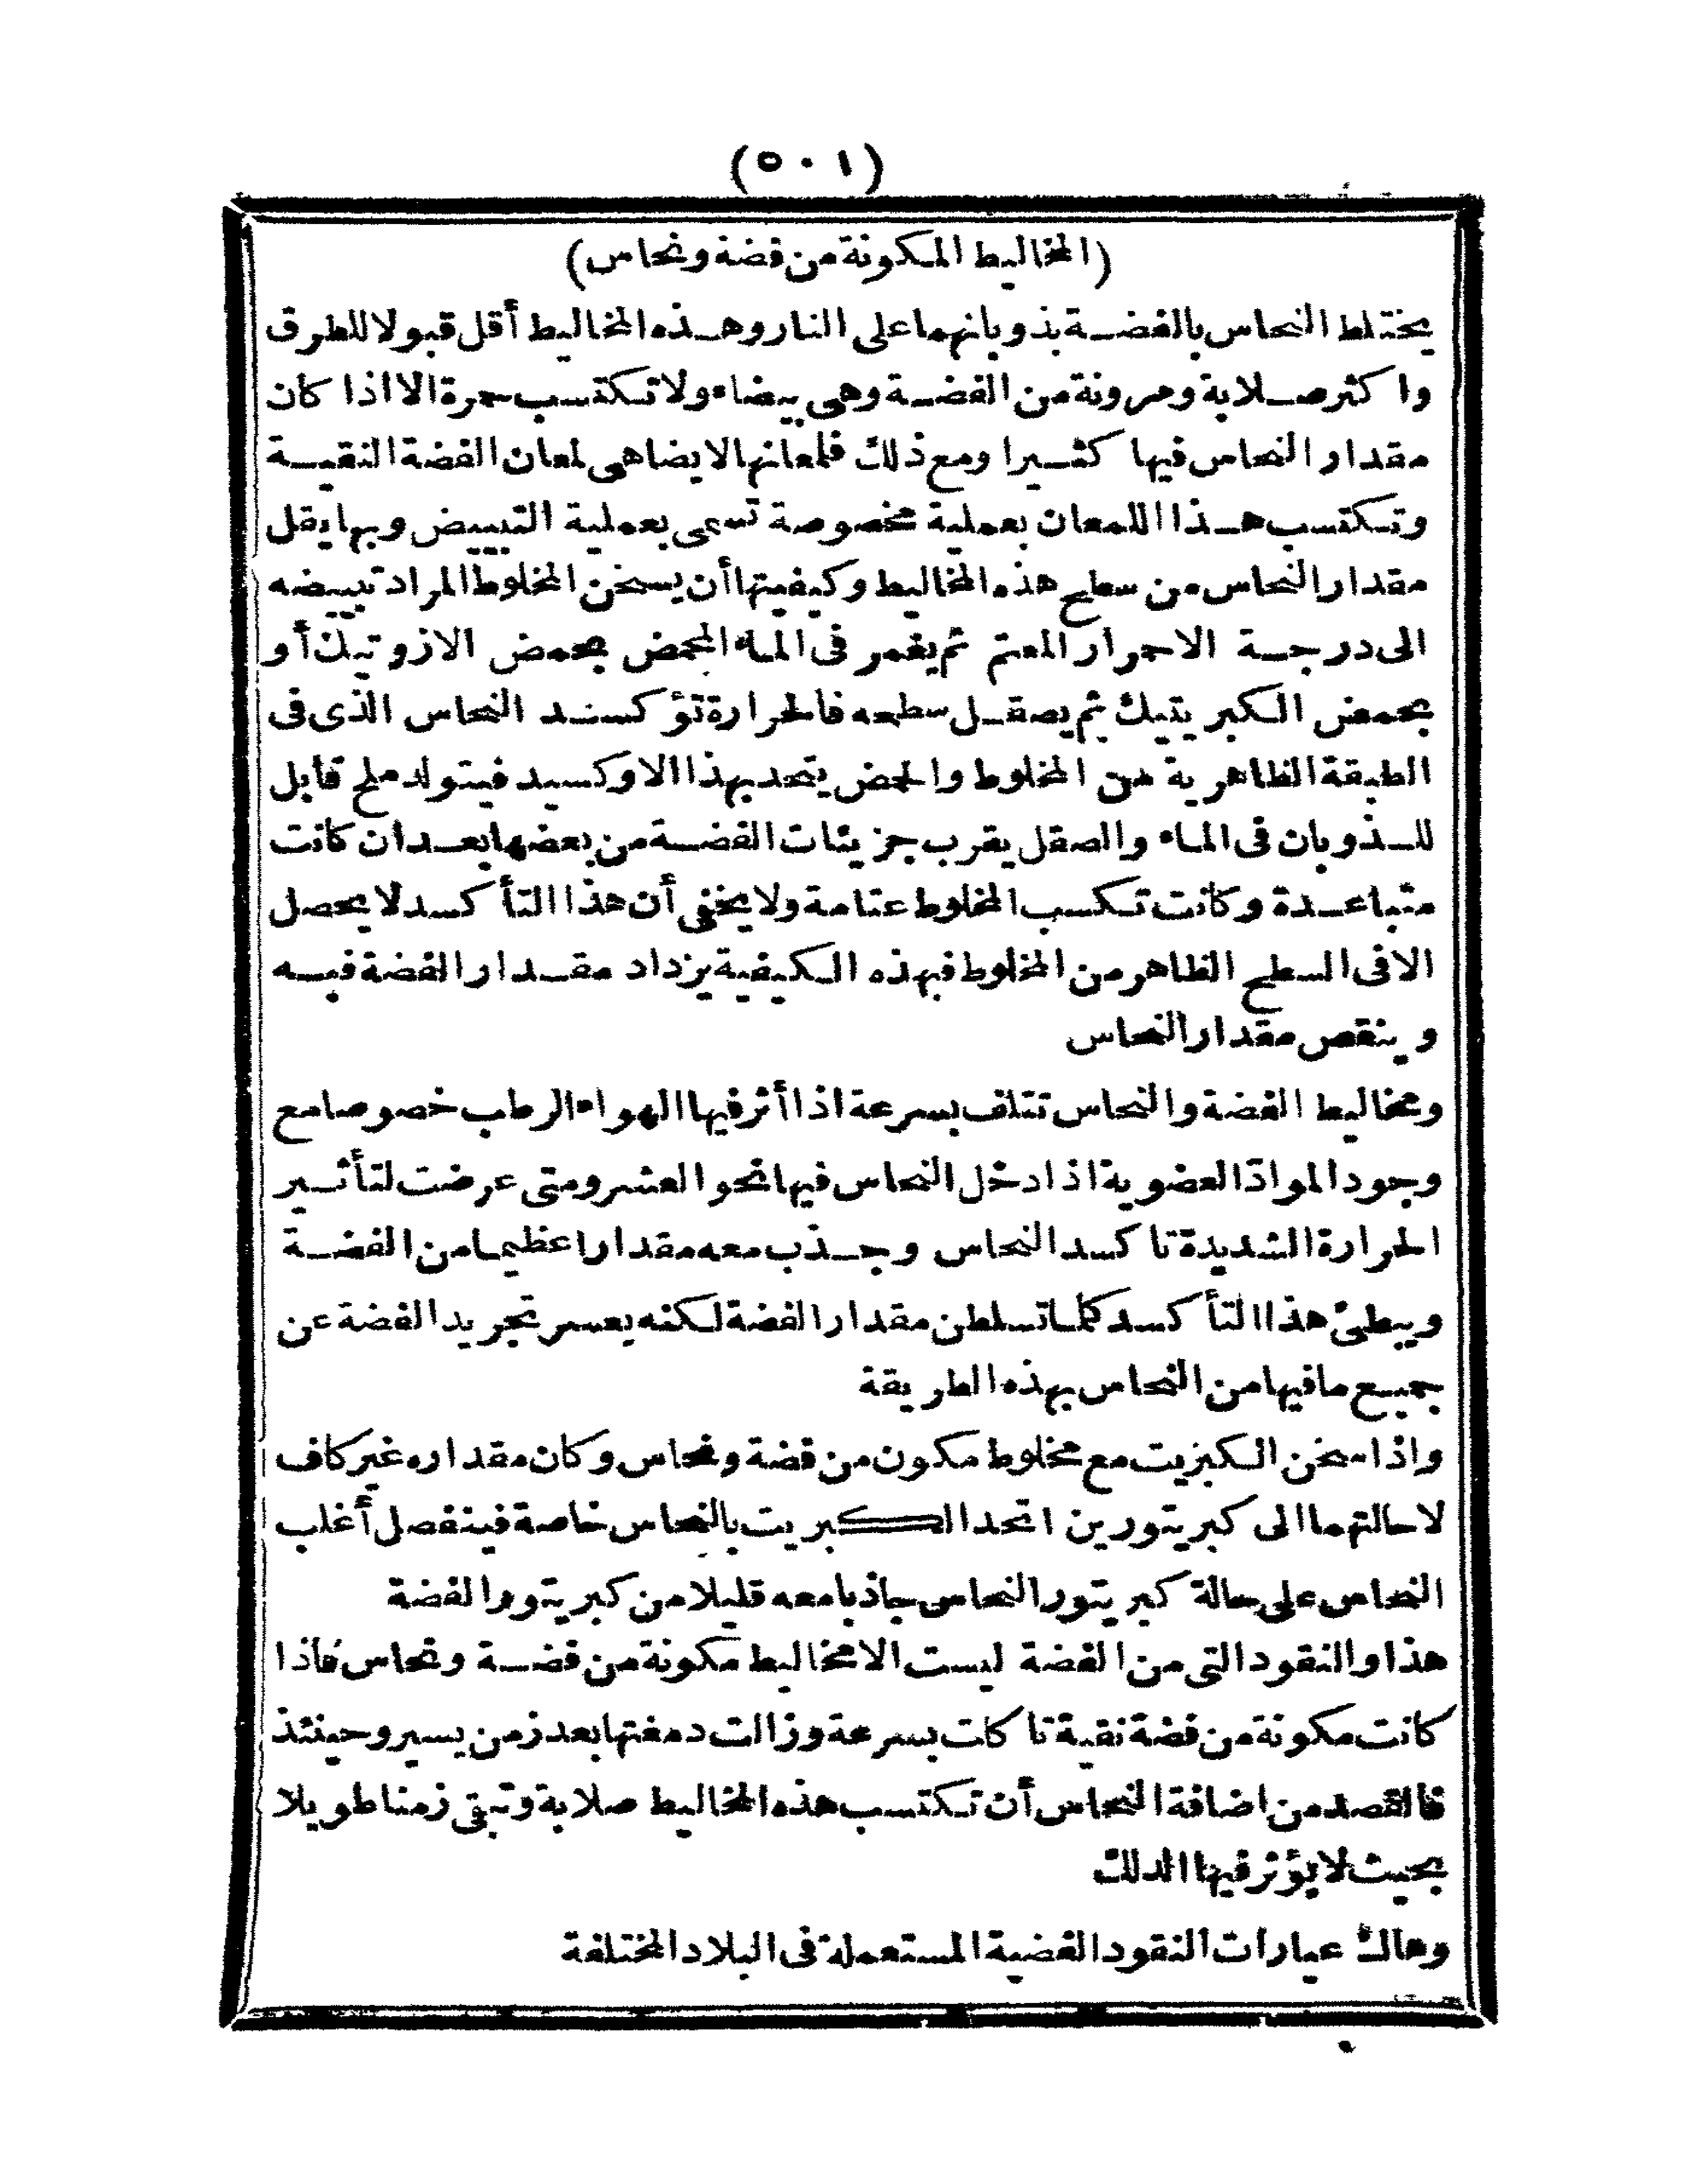 (٥٠١)
(المخاليط المكونة من فضة ونحاس)
يختلط النحاس بالفضة بذوبانهما على النار وهذه المخاليط أقل قبولا للطرق
واكثر صلابة ومرونة من الفضة وهى بيضاء ولا تكتسب حمرة الا اذا كان
مقدار النحاس فيها كثيرا ومع ذلك فلمعانها لا يضاهى لمعان الفضة النقية
وتكتسب هذا اللمعان بعملية مخصوصة تسمى بعملية التبييض وبها يقل
مقدار النحاس من سطح هذه المخاليط وكيفيتها أن يسخن المخلوط المراد تبييضه
الى درجة الاحمرار المعتم ثم يغمر فى الماء المحمض بحمض الازوتيك أو
بحمض الكبريتيك ثم يصقل سطحه فالحرارة تؤكسد النحاس الذى فى
الطبقة الظاهرية من المخلوط والحمض يتحد بهذا الاوكسيد فيتولد ملح قابل
للذوبان فى الماء والصقل يقرب جزيئات الفضة من بعضها بعد ان كانت
متباعدة وكانت تكسب المخلوط عتامة ولا يخفى أن هذا التأكسد لا يحصل
الا فى السطح الظاهر من المخلوط فبهذه الكيفية يزداد مقدار الفضة فيه
وينقص مقدار النحاس
ومخاليط الفضة والنحاس تتلف بسرعة اذا أثر فيها الهواء الرطب خصوصا مع
وجود المواد العضوية اذا دخل النحاس فيها نحو العشر ومتى عرضت لتأثير
الحرارة الشديدة تاكسد النحاس وجذب معه مقدارا عظيما من الفضة
ويبطئ هذا التأكسد كلما تسلطن مقدار الفضة لكنه يعسر تجريد الفضة عن
جميع ما فيها من النحاس بهذه الطريقة
واذا سخن الكبريت مع مخلوط مكون من فضة ونحاس وكان مقداره غير كاف
لاحالتهما الى كبريتورين اتحد الكبريت بالنحاس خاصة فينفصل أغلب
النحاس على حالة كبريتور النحاس جاذبا معه قليلا من كبريتور الفضة
هذا والنقود التى من الفضة ليست الا مخاليط مكونة من فضة ونحاس فاذا
كانت مكونة من فضة نقية تاكلت بسرعة وزالت دمغتها بعد زمن يسير وحينئذ
فالقصد من اضافة النحاس أن تكتسب هذه المخاليط صلابة وتبقى زمنا طويلا
بحيث لا يؤثر فيها الدلك
وهاك عيارات النقود الفضية المستعملة فى البلاد المختلفة